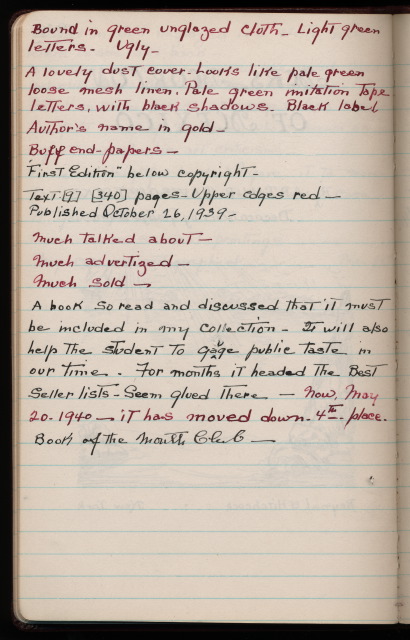 Bound in green unglazed cloth - Light green
letters - Ugly -
A lovely dust cover - Looks like pale green
loose mesh linen. Pale green imitation Tape
letters, with black shadows. Black label
Author's name in gold -
Buff end-papers -
"First Edition" below copyright -
Text [9] [340] pages - Upper edges red -
Published October 26, 1939 -
Much talked about -
Much advertized -
Much sold -
A book so read and discussed that it must
be included in my collection - It will also
help the student to gage public taste in
our time. For months it headed the Best
Seller lists - Seem glued there - Now, May
20 - 1940 - it has moved down - 4th place.
Book of the Month Club -